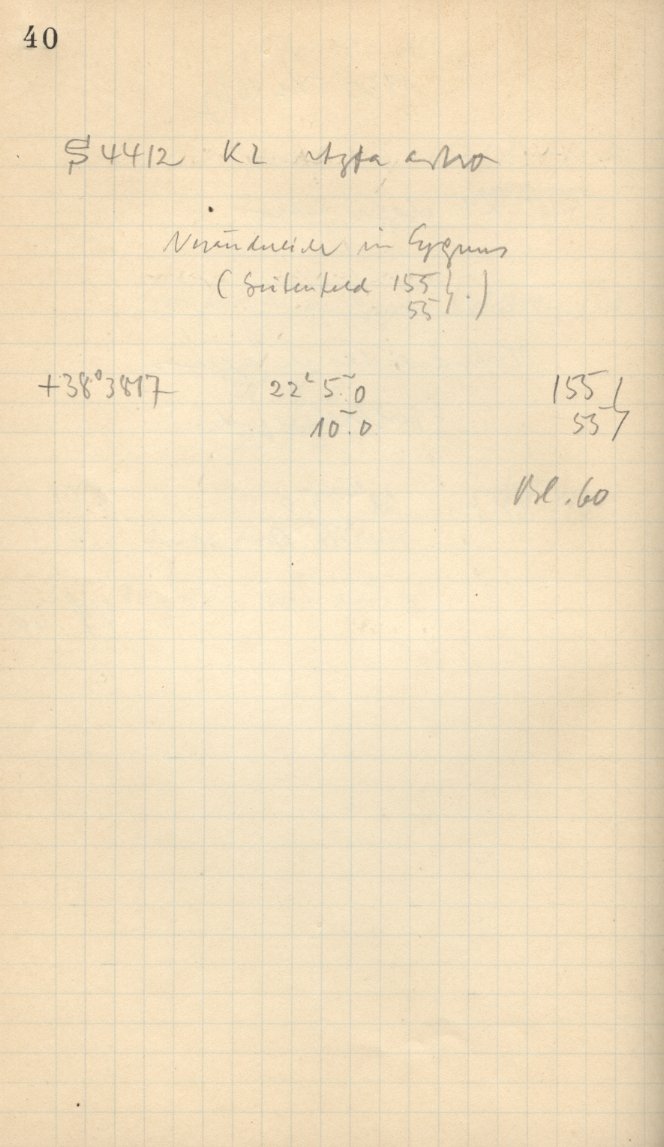 40
S 4412 KL Agfa astro
Veränderliche in Cygnus
(Seitenfeld 155 } .)
55
+38°3817 22ʰ 5ᵐ.0 155 }
10ᵐ.0 55
Bl. 60